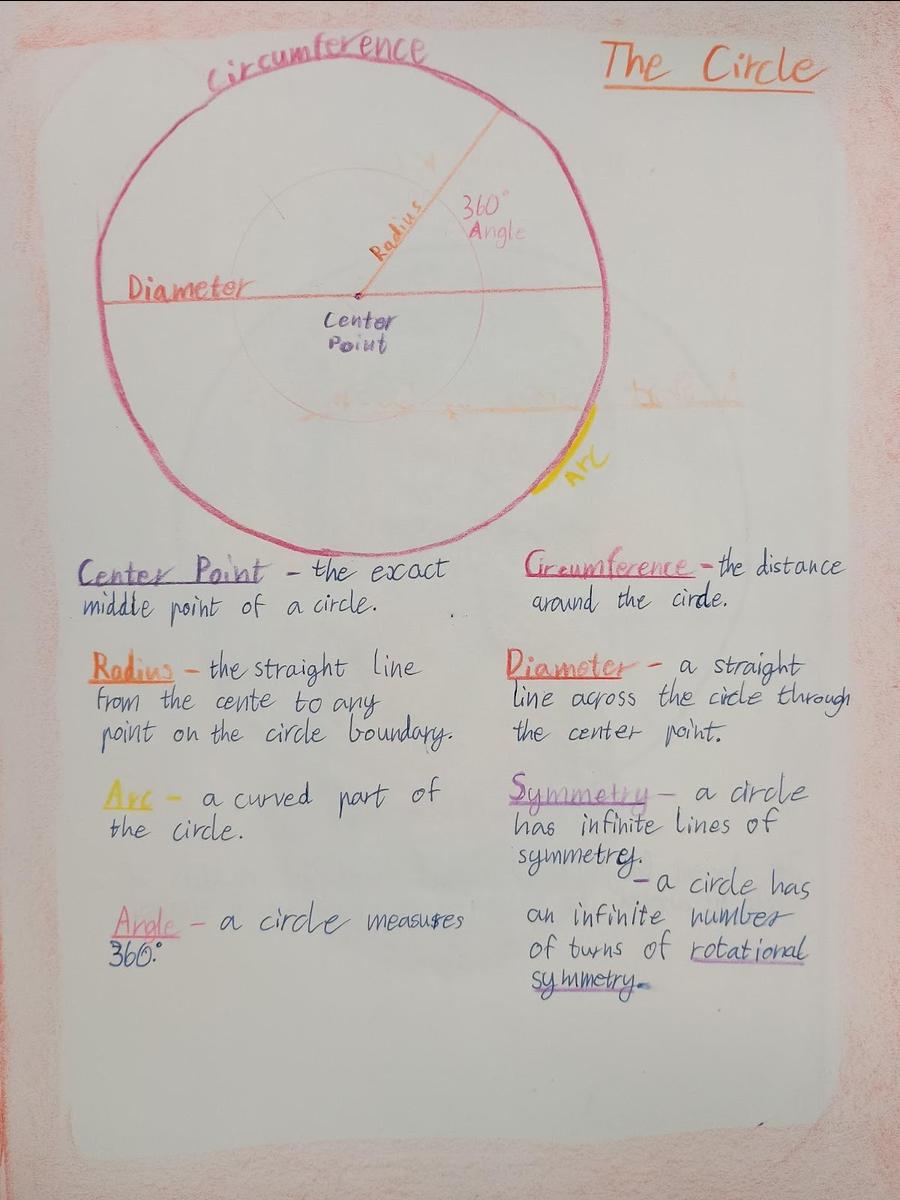 The Circle
Circumference
360°
Angle
Radius
Diameter
Center
Point
Arc
Center Point - the exact
middle point of a circle.
Circumference - the distance
around the circle.
Radius - the straight line
from the cente to any
point on the circle boundary.
Diameter - a straight
line across the circle through
the center point.
Arc - a curved part of
the circle.
Symmetry - a circle
has infinite lines of
symmetrey.
- a circle has
an infinite number
of turns of rotational
symmetry.
Angle - a circle measures
360°.